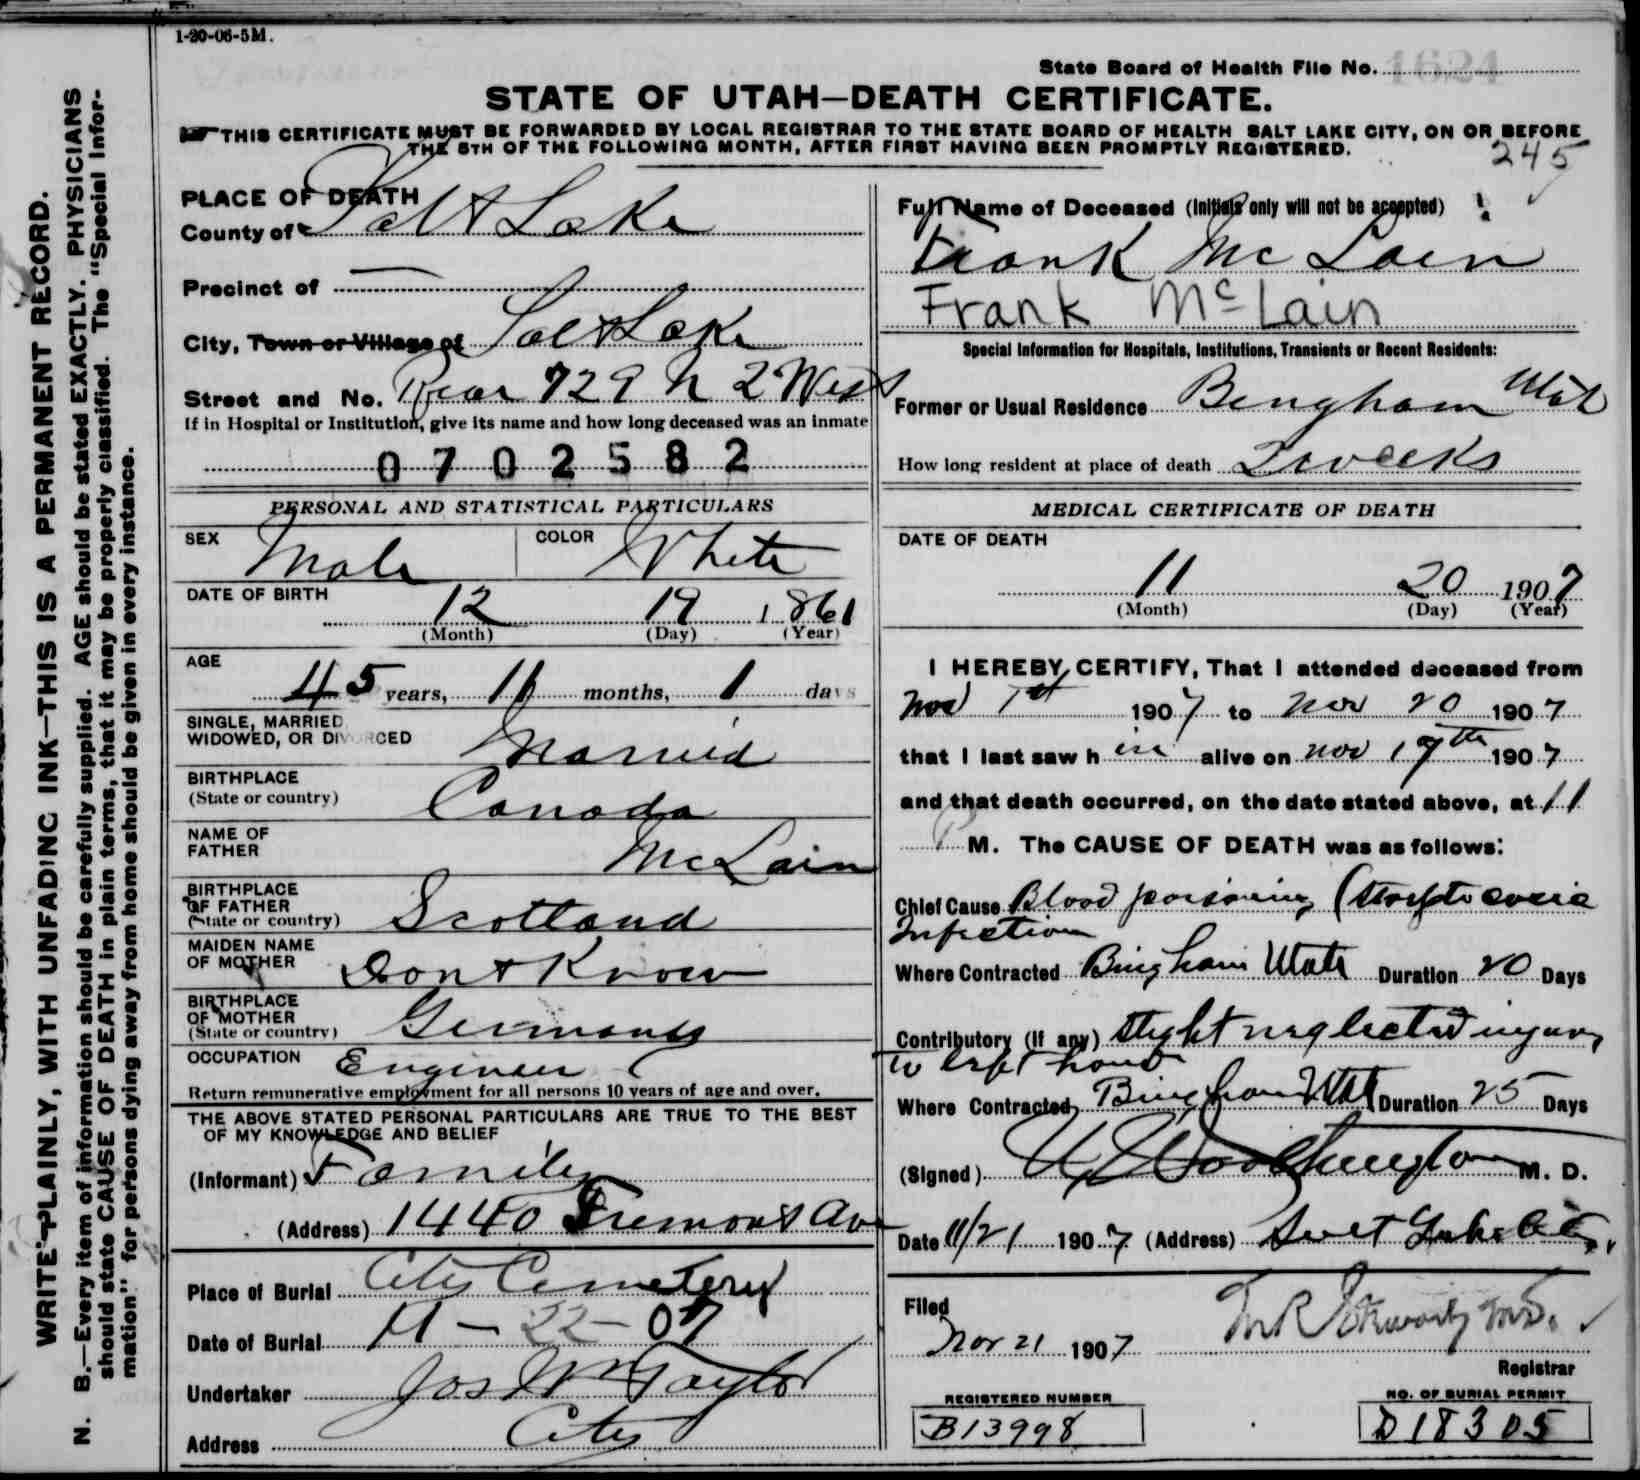 1-20-06-5M.
State Board of Health File No. 1624
STATE OF UTAH—DEATH CERTIFICATE.
THIS CERTIFICATE MUST BE FORWARDED BY LOCAL REGISTRAR TO THE STATE BOARD OF HEALTH SALT LAKE CITY, ON OR BEFORE
THE 5TH OF THE FOLLOWING MONTH, AFTER FIRST HAVING BEEN PROMPTLY REGISTERED.
245
WRITE PLAINLY, WITH UNFADING INK—THIS IS A PERMANENT RECORD.
N. B.—Every item of information should be carefully supplied. AGE should be stated EXACTLY. PHYSICIANS
should state CAUSE OF DEATH in plain terms, that it may be properly classified. The "Special Infor-
mation" for persons dying away from home should be given in every instance.
PLACE OF DEATH
County of Salt Lake
Precinct of —
City, Town or Village of Salt Lake
Street and No. Rear 729 N 2 West
If in Hospital or Institution, give its name and how long deceased was an inmate
0702582
PERSONAL AND STATISTICAL PARTICULARS
SEX Male COLOR White
DATE OF BIRTH
12 19 1861
(Month) (Day) (Year)
AGE
45 years, 11 months, 1 days
SINGLE, MARRIED
WIDOWED, OR DIVORCED Married
BIRTHPLACE
(State or country) Canada
NAME OF
FATHER McLain
BIRTHPLACE
OF FATHER
(State or country) Scotland
MAIDEN NAME
OF MOTHER Dont Know
BIRTHPLACE
OF MOTHER
(State or country) Germany
OCCUPATION Engineer
Return remunerative employment for all persons 10 years of age and over.
THE ABOVE STATED PERSONAL PARTICULARS ARE TRUE TO THE BEST
OF MY KNOWLEDGE AND BELIEF
(Informant) Family
(Address) 1440 Fremont Ave
Place of Burial City Cemetery
Date of Burial 11-22-07
Undertaker Jos Wm Taylor
Address City
Full Name of Deceased (Initials only will not be accepted)
Frank McLain
Frank McLain
Special Information for Hospitals, Institutions, Transients or Recent Residents:
Former or Usual Residence Bingham Utah
How long resident at place of death 2 weeks
MEDICAL CERTIFICATE OF DEATH
DATE OF DEATH
11 20 1907
(Month) (Day) (Year)
I HEREBY CERTIFY, That I attended deceased from
Nov 1st 1907 to Nov 20 1907
that I last saw him alive on Nov 19th 1907
and that death occurred, on the date stated above, at 11
P M. The CAUSE OF DEATH was as follows:
Chief Cause Blood poisoning (Streptococcic
Infection
Where Contracted Bingham Utah Duration 20 Days
Contributory (if any) slight neglected injury
to left hand
Where Contracted Bingham Utah Duration 25 Days
(Signed) Worthington M. D.
Date 11/21 1907 (Address) Salt Lake City.
Filed
Nov 21 1907
Registrar
REGISTERED NUMBER
B13998
NO. OF BURIAL PERMIT
D18305